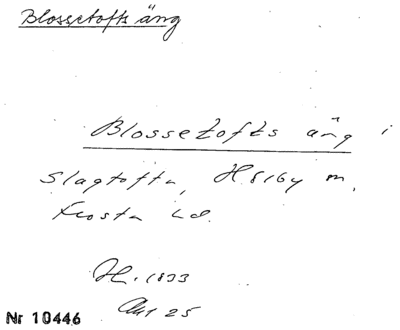 Blossetofts äng
Blossetofts äng i
Slagtofta, Hörby m.
Frosta hd.
H. 1833
Akt 25
Nr 10446